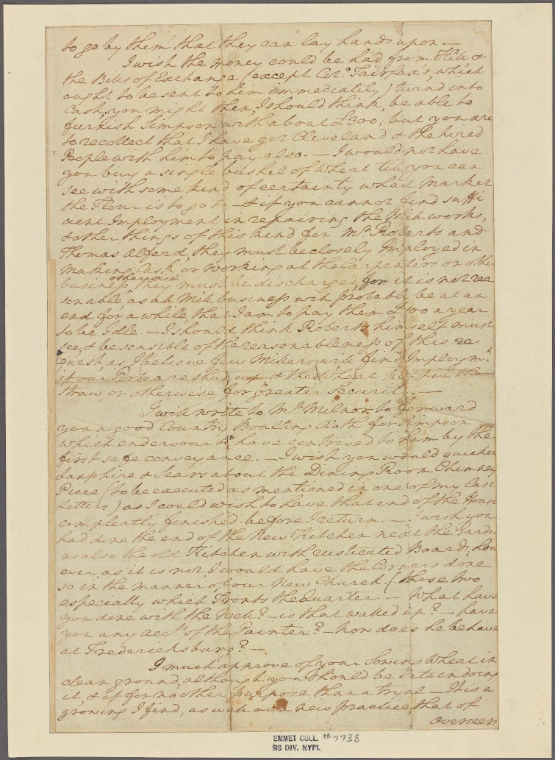 to go by them that they can lay hands upon.—
I wish the money could be had from Hill &
the Bills of Exchange (except Colo. Fairfax's, which
ought to be sent to him immediately) turnd into
Cash; you might then, I should think, be able to
furnish Simpson with about £300, but you are
to recollect that I have got Cleveland & the hired
People with him to pay also.— I would not have
you buy a single bushel of Wheat till you can
see with some kind of certainty what Market
the Flour is to go to — & if you cannot find suffi
cient Imployment in repairing the Mill works,
& other things of this kind for Mr. Roberts and
Thomas Alferd, they must be closely Imployed in
making Cask or working at the Carpenters or other
business otherwise they must be discharged, for it is not rea
sonable as all Mill business will probably be at an
end for a while that I am to pay them £100 a year
to be Idle.— I should think Roberts himself must
see, & be sensible of the reasonableness of this re
quest, as I believe few Millers will find Imploymt.
if our Ports are shut up & the Wheat kept in the
Straw or otherwise for greater Security.—
I will write to Mr. Milnor to forward
you a good Country Boulting Cloth for Simpson
which endeavour to have contrived to him by the
first safe conveyance.— I wish you would quicken
Lanphire & Sears about the Dining Room Chimney
Piece (to be executed as mentioned in one of my last
Letters) as I could wish to have that end of the House
compleatly finished before I return.— I wish you
had done the end of the New Kitchen next the Garden
as also the old Kitchen with rusticated Boards; how
ever, as it is not, I would have the Corners done
so in the manner of our New Church. (those two
especially which Fronts the Quarter.— What have
you done with the Well?— is that walled up?— have
you any acct. of the Painter?— how does he behave
at Fredericksburg?—
I much approve of your Sowing Wheat in
clean ground, although you should be late in doing
it, & if for no other purpose than a tryal — It is a
growing I find, as well as a new practice, that of
overseers
EMMET COLL. No 7738
MS DIV. NYPL